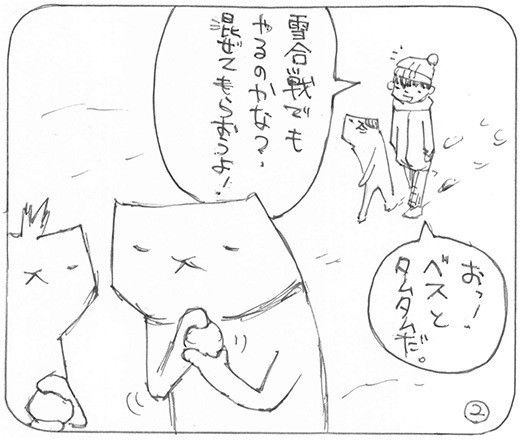 おっ！
ベスと
タムタムだ。
雪合戦でも
やるのかなっ、
混ぜてもらおうよ！
2